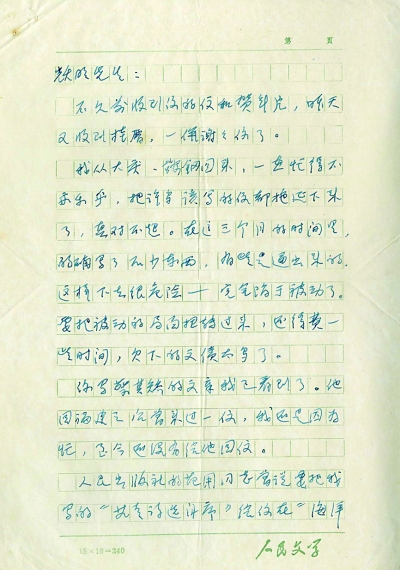 第 页
先生:
不久前收到您的信和贺年片,昨天
又收到挂历,一併谢谢你了。
我从大 、 回来,一直忙得不
亦乐乎,把许多该写的信都拖延下来
了,真对不起。在这三个月的时间里,
的确写了不少东西,有些是逼出来的。
这样下去很危险——完全陷于被动了。
要把被动的局面扭转过来,还得费一
些时间,欠下的文债太多了。
你写 其 的文章我已看到了。他
回福建之后曾来过一信,我还是因为
忙,至今还没有给他回信。
人民出版社的范用同志曾说要把我
写的《艾青诗选 序》给您在《海洋
15×16=240
人民文学